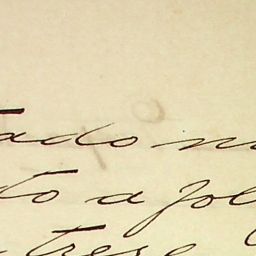 tado n
to a fol
trese